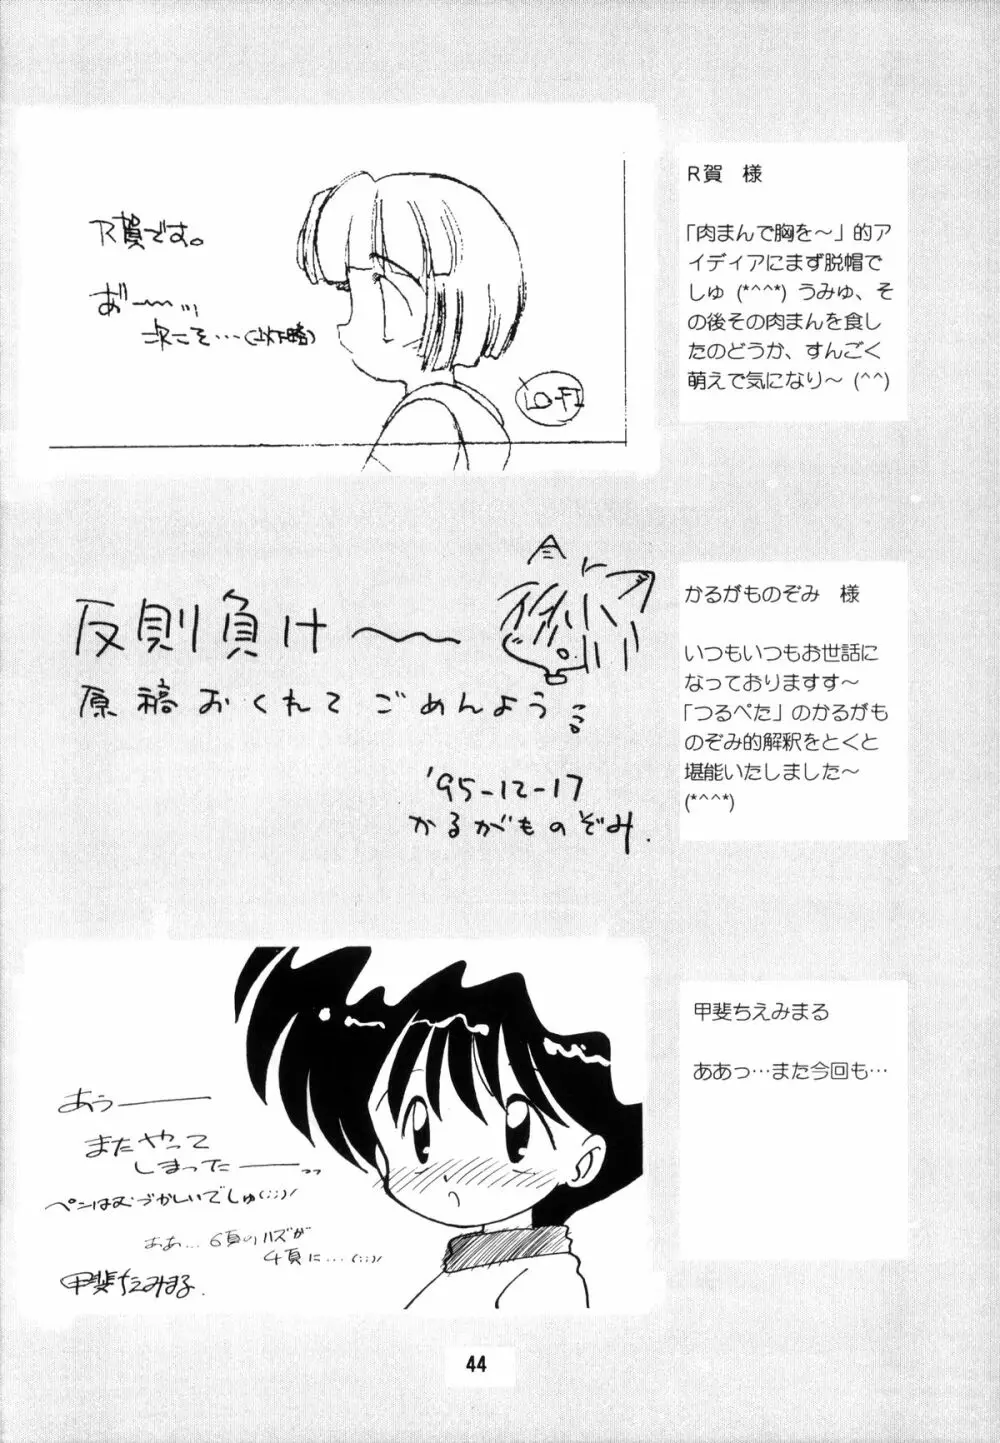 R賀です。
あ゛ー〜〜…
次こそ…(以下略)
LO-FI
R賀　様
「肉まんで胸を〜」的ア
イディアにまず脱帽で
しゅ (*^^*) うみゅ、そ
の後その肉まんを食し
たのどうか、すんごく
萌えで気になり〜 (^^)
反則負け〜〜
原稿おくれてごめんよう
'95-12-17
かるがものぞみ.
かるがものぞみ　様
いつもいつもお世話に
なっておりますす〜
「つるぺた」のかるがも
のぞみ的解釈をとくと
堪能いたしました〜
(*^^*)
あぅ———
またやって
しまったー——っっ
ペンはむづかしいでしゅ(;;)/
ああ…6頁のハズが
4頁に…(;;)/
甲斐ちえみまる.
甲斐ちえみまる
ああっ…また今回も…
44